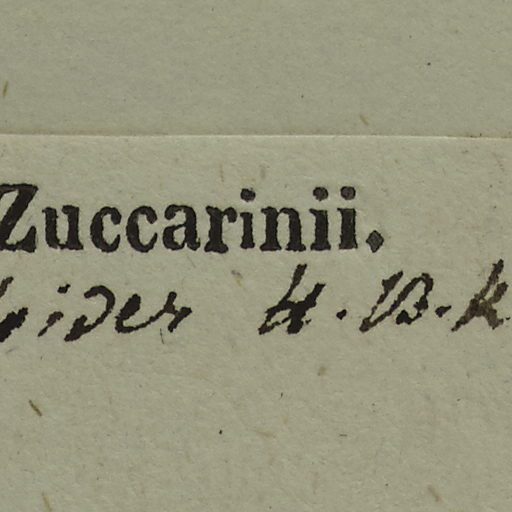 Zuccarinii.
ides H. B. K